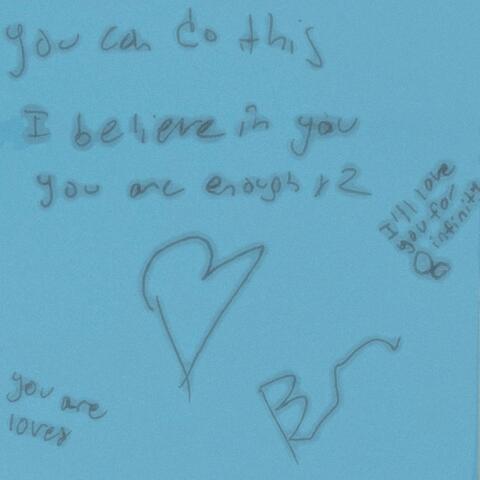 you can do this
I believe in you
you are enough r2
I'll love
you for
infinity
you are
loves